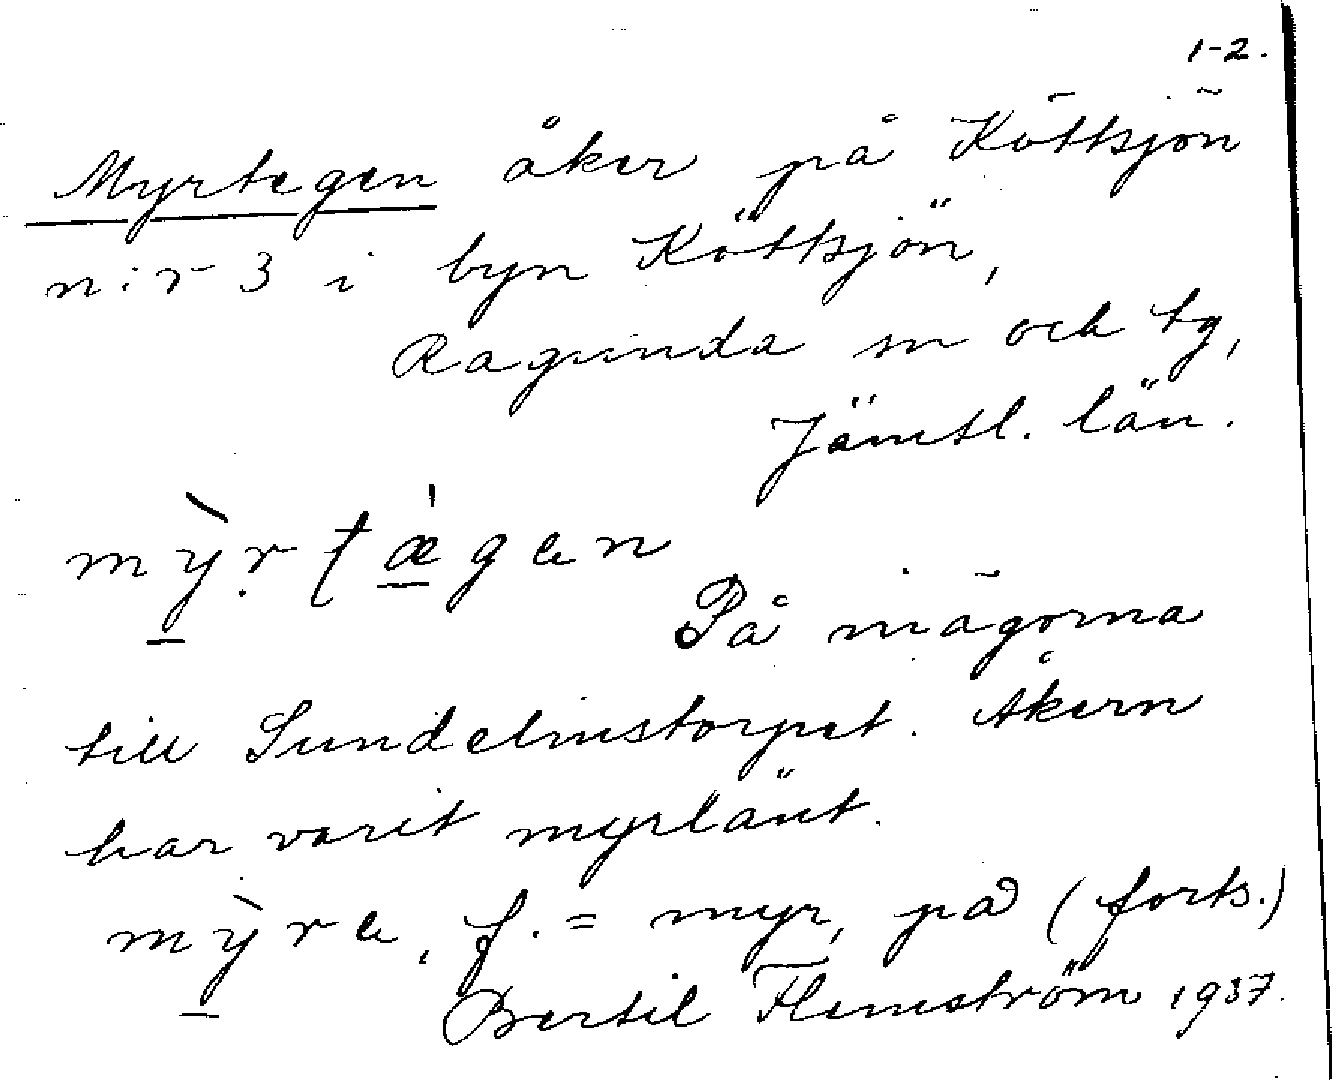 1-2.
Myrtegen åker på Köttsjön
n:r 3 i byn Köttsjön,
Ragunda sn och tg,
Jämtl. län.
mỳr tǽgen
På inägorna
till Sundelinstorpet. Åkern
har varit myrlänt.
mỳre, f. = myr, på (forts.)
Bertil Flemström 1937.